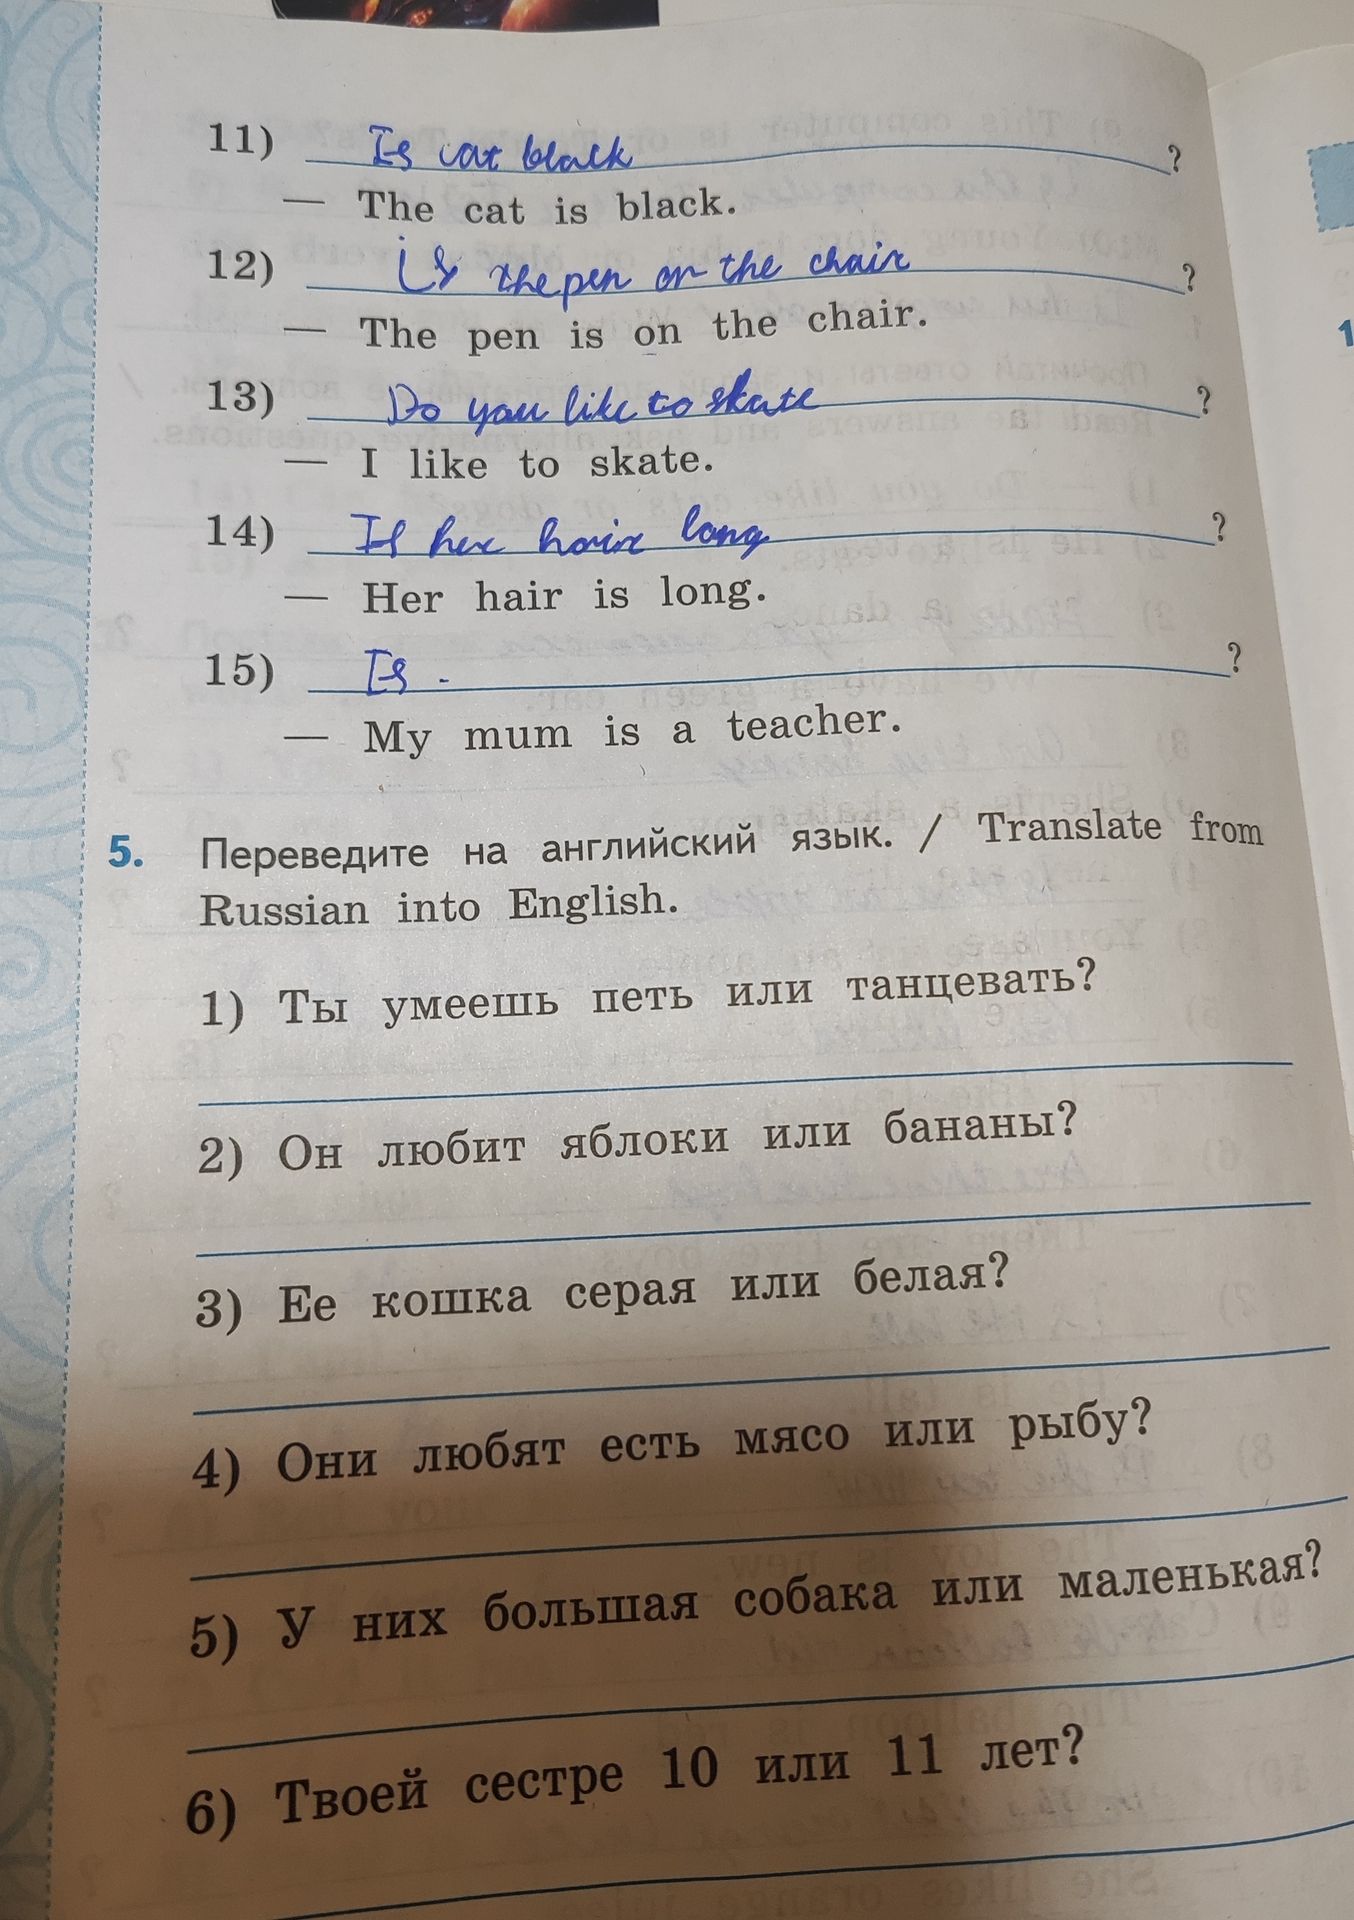 11) Is cat black ?
— The cat is black.
12) is the pen on the chair ?
— The pen is on the chair.
13) Do you like to skate ?
— I like to skate.
14) Is her hair long ?
— Her hair is long.
15) Is ?
— My mum is a teacher.
5. Переведите на английский язык. / Translate from
Russian into English.
1) Ты умеешь петь или танцевать?
2) Он любит яблоки или бананы?
3) Ее кошка серая или белая?
4) Они любят есть мясо или рыбу?
5) У них большая собака или маленькая?
6) Твоей сестре 10 или 11 лет?
1